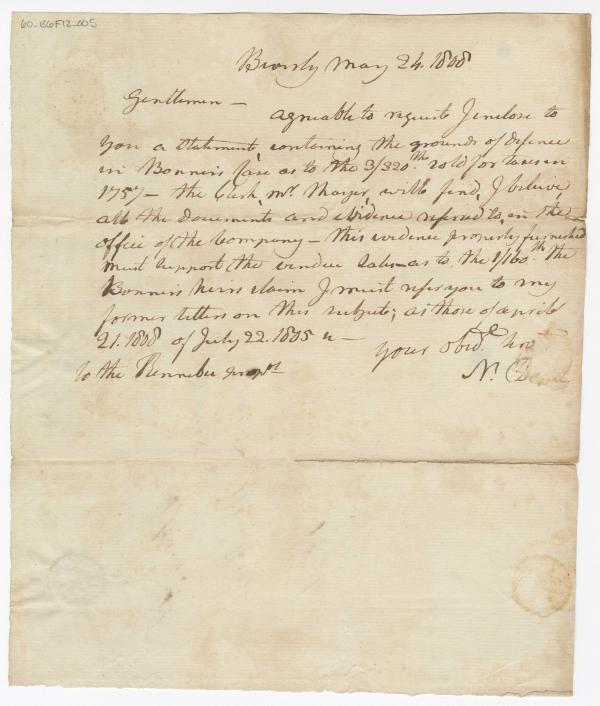 60-B6F12-005
Beverly May 24. 1808
Gentlemen — agreable to request I enclose to
you a statement, containing the grounds of defence
in Bonner's case as to the 3/320th sold for taxes in
1757 — the Clerk, Mr. Thayer, will find, I believe
all the documents and evidence referred to, in the
office of the Company — this evidence properly furnished
must support the vendue sales — as to the 1/160th the
Bonner's heirs claim I must refer you to my
former letters on this subject; as those of april
21. 1808 of July 22. 1805 &c —
your obedt.
to the Kennebec
N. Dane